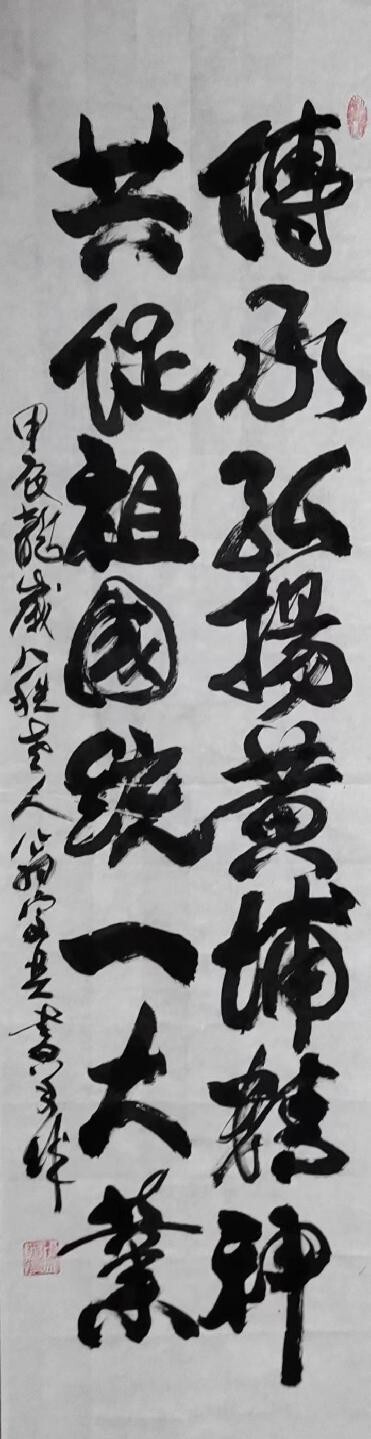 傳承弘揚黄埔精神
共促祖國統一大業
甲辰龍歲八秩老人翁